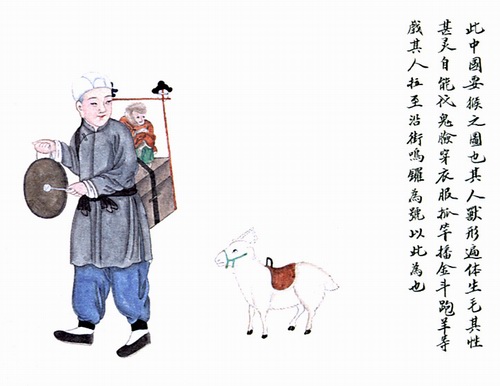 此中國耍猴之圖也其人獸形遍体生毛其性
甚灵自能伏鬼臉穿衣服扒竿播金斗跑羊等
戲其人拉至沿街鳴鑼為號以此為也